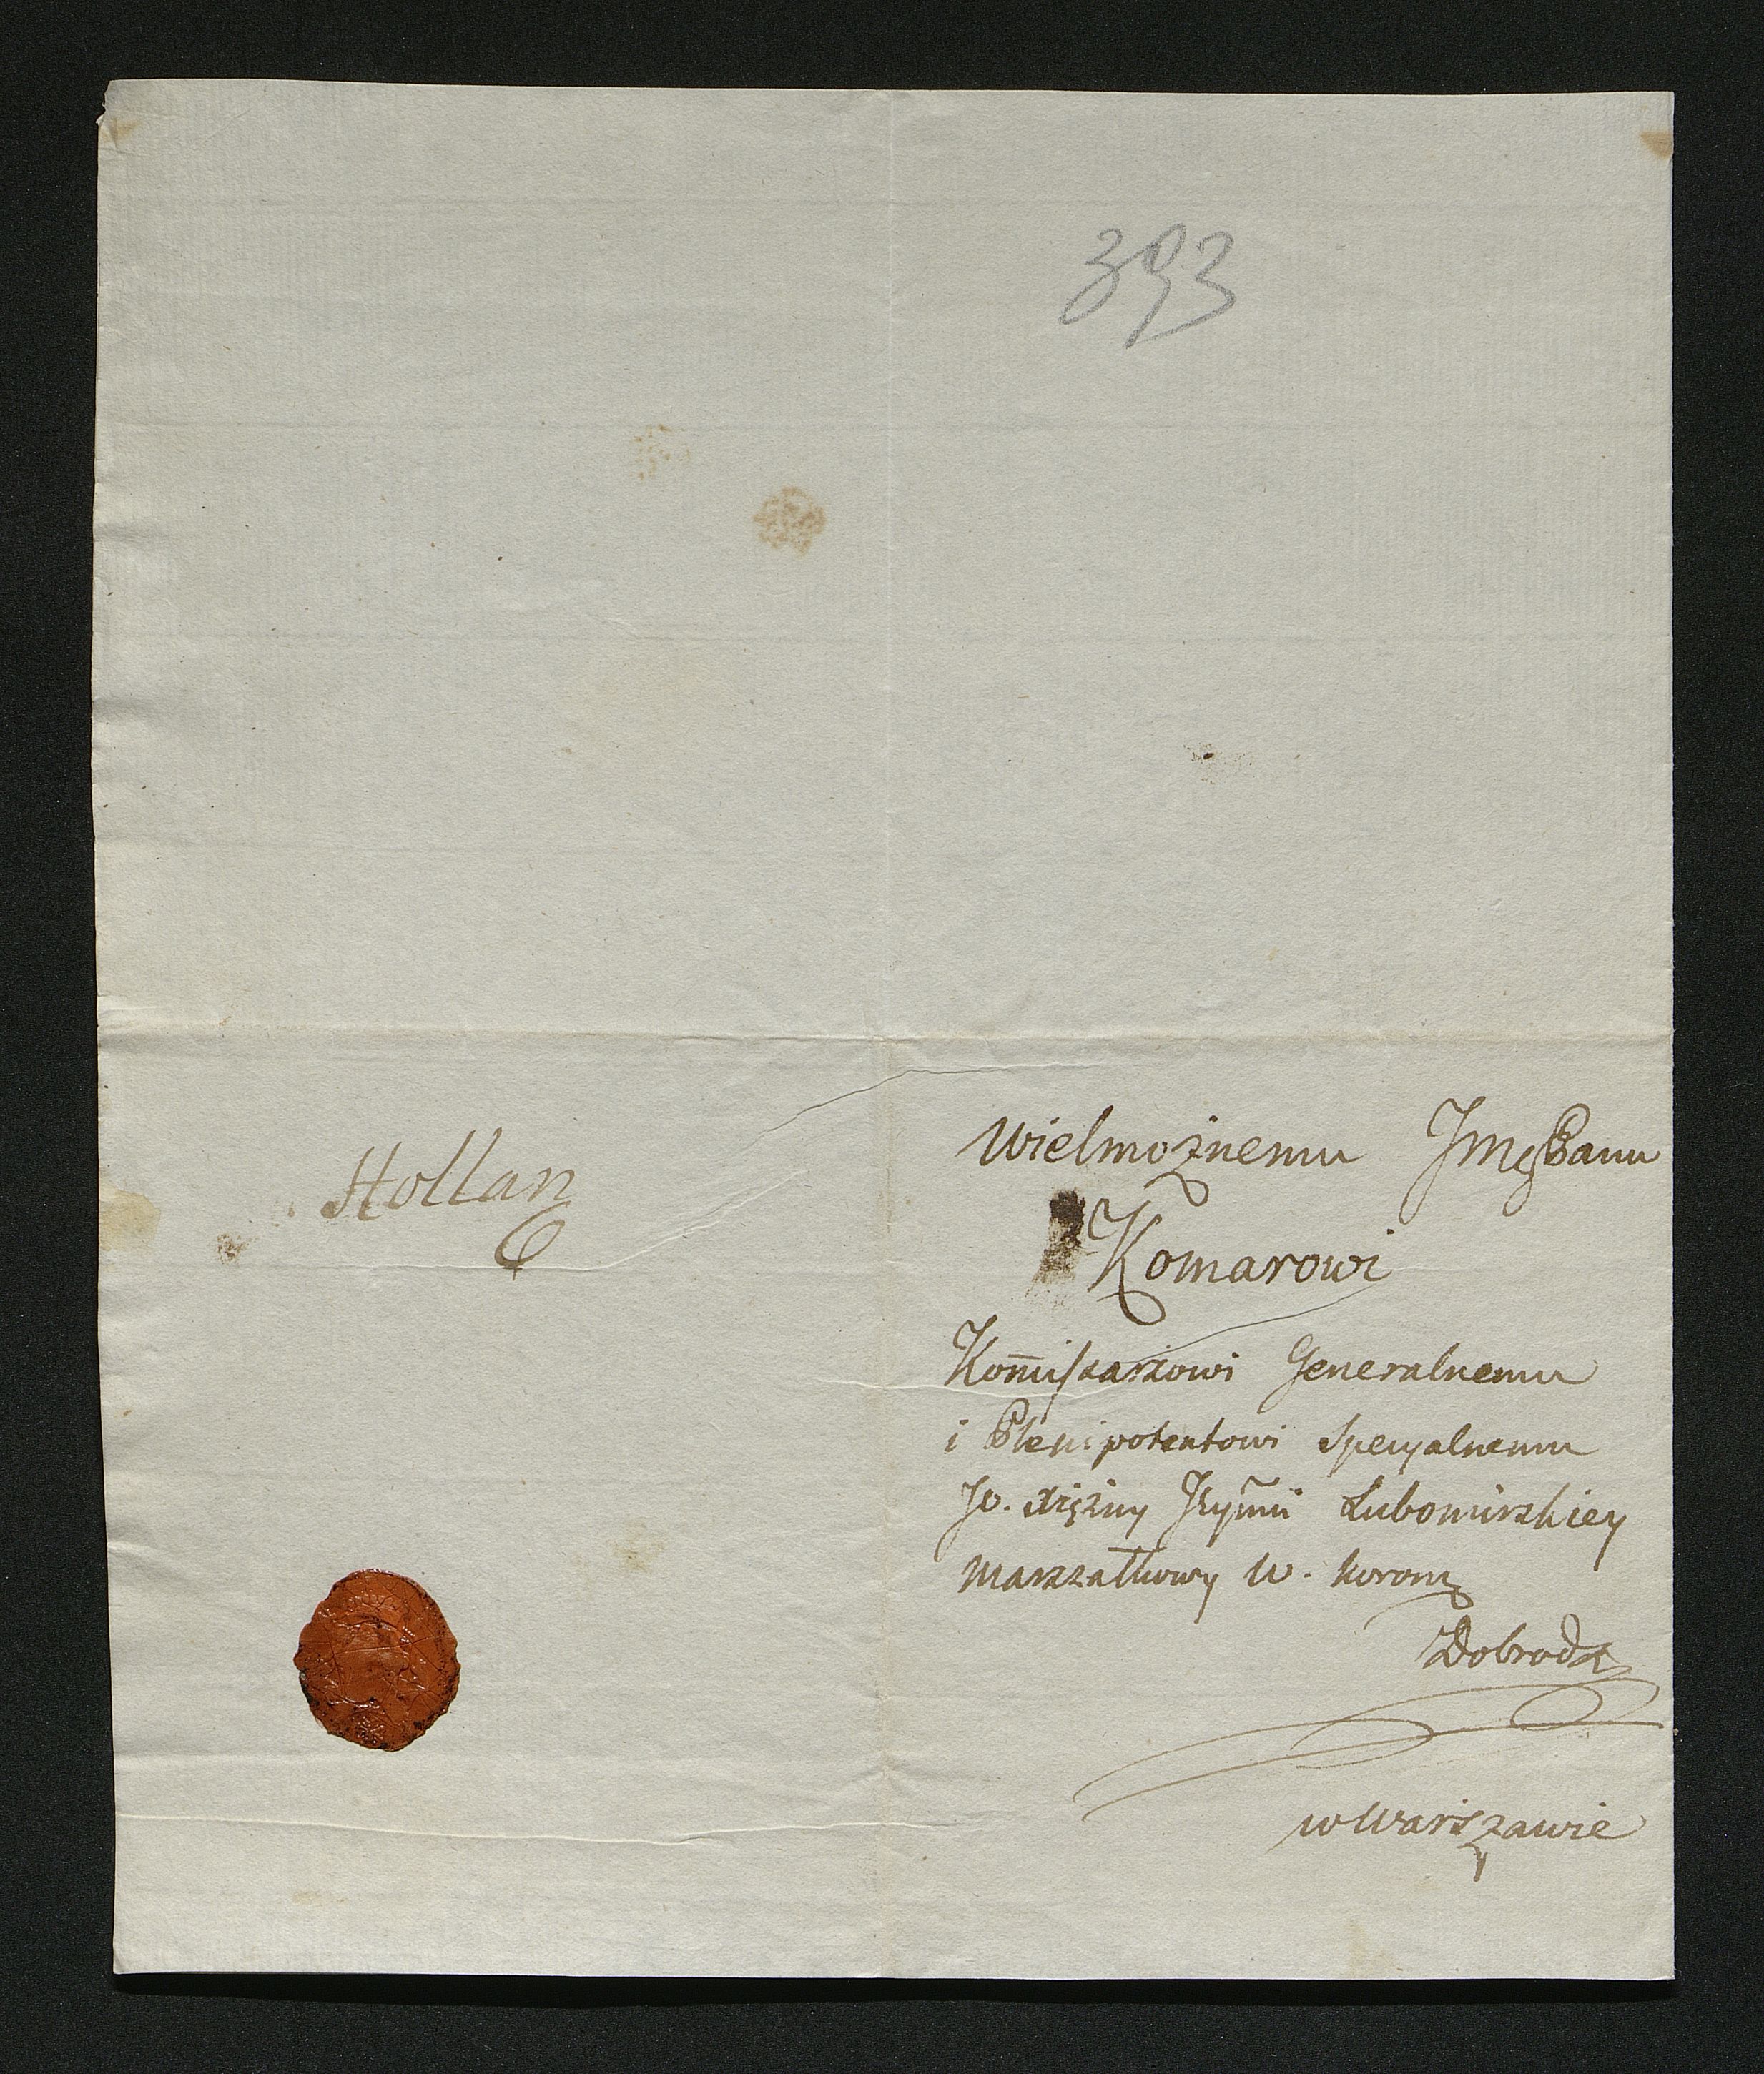 393
Hollan
Wielmożnemu JmgPanu
Komarowi
Kom̃iſsarzowi Generalnemu
i Plenipotentowi Specyalnemu
JO. Xiężny Jeym̃i Lubomirskiey
Marszałkowy W. Koronꝫ
Dobrodz
w Warszawie